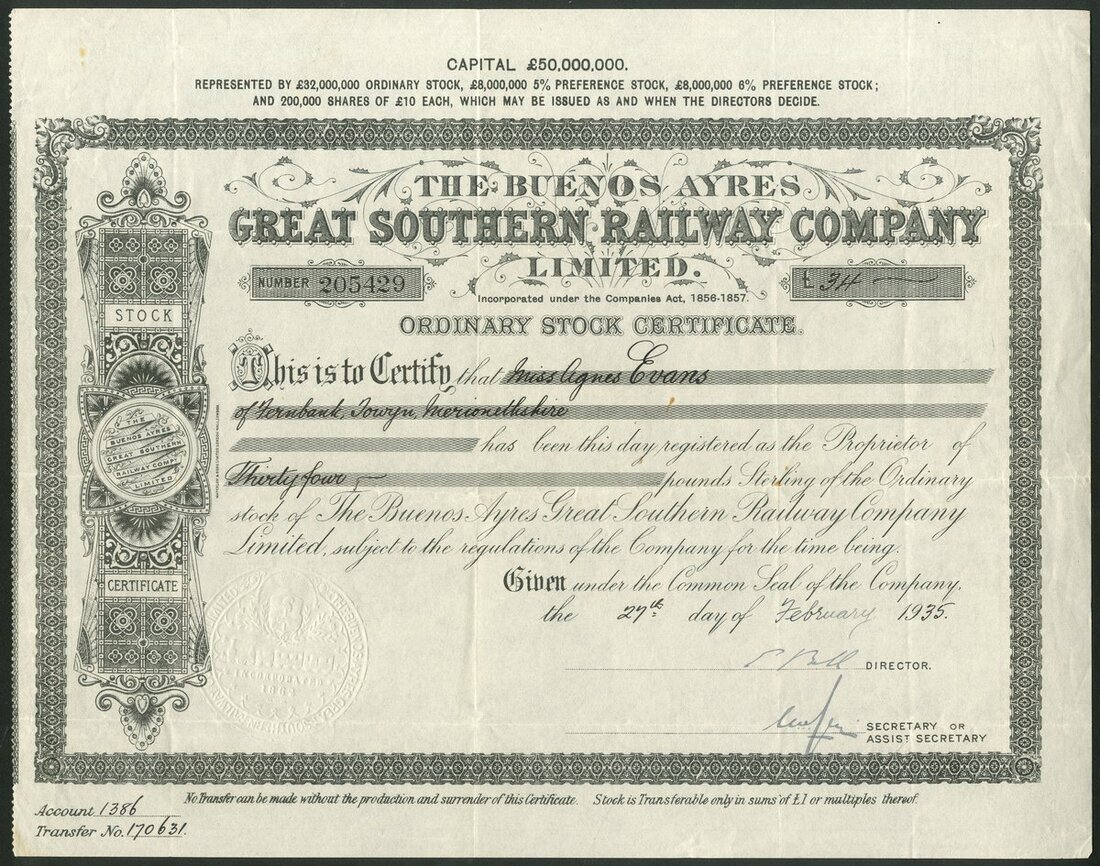 CAPITAL £50,000,000.
REPRESENTED BY £32,000,000 ORDINARY STOCK, £8,000,000 5% PREFERENCE STOCK, £8,000,000 6% PREFERENCE STOCK;
AND 200,000 SHARES OF £10 EACH, WHICH MAY BE ISSUED AS AND WHEN THE DIRECTORS DECIDE.
THE BUENOS AYRES
GREAT SOUTHERN RAILWAY COMPANY
LIMITED.
NUMBER 205429
£ 34
Incorporated under the Companies Act, 1856-1857.
ORDINARY STOCK CERTIFICATE.
This is to Certify that Miss Agnes Evans
of Fernbank, Towyn, Merionethshire
has been this day registered as the Proprietor of
Thirty four pounds Sterling of the Ordinary
stock of The Buenos Ayres Great Southern Railway Company
Limited, subject to the regulations of the Company for the time being.
Given under the Common Seal of the Company,
the 27th day of February 1935.
DIRECTOR.
SECRETARY OR
ASSIST SECRETARY
STOCK
THE
BUENOS AYRES
GREAT SOUTHERN
RAILWAY COMPY
LIMITED
CERTIFICATE
No Transfer can be made without the production and surrender of this Certificate. Stock is Transferable only in sums of £1 or multiples thereof.
Account 1386
Transfer No. 170631.